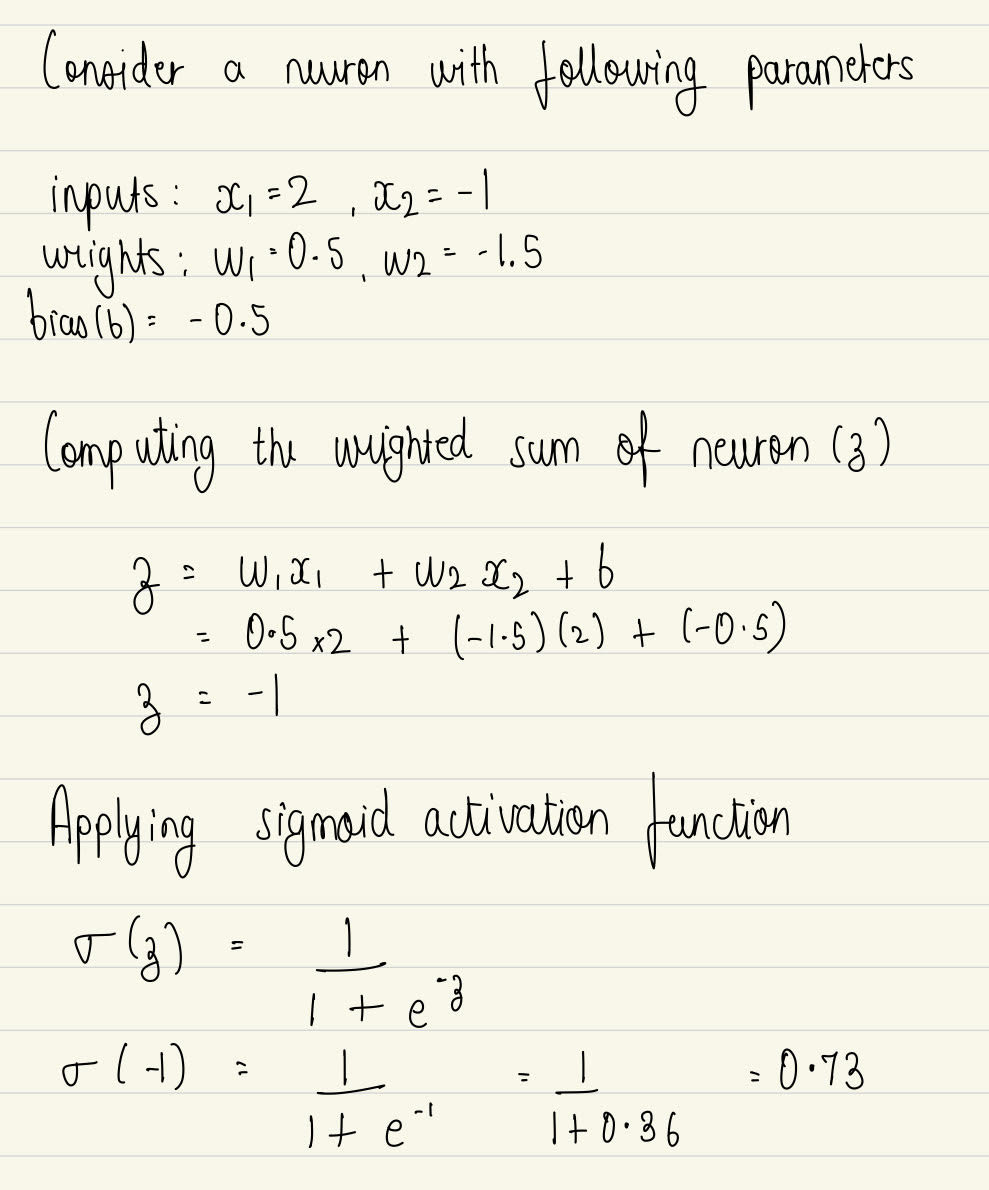 Consider a neuron with following parameters
inputs: x₁ = 2 , x₂ = -1
weights: w₁ = 0.5 , w₂ = -1.5
bias(b) = -0.5
Computing the weighted sum of neuron (z)
z = w₁x₁ + w₂x₂ + b
= 0.5 × 2 + (-1.5)(2) + (-0.5)
z = -1
Applying sigmoid activation function
σ(z) = 1 / (1 + e^-z)
σ(-1) = 1 / (1 + e^-1) = 1 / (1 + 0.36) = 0.73